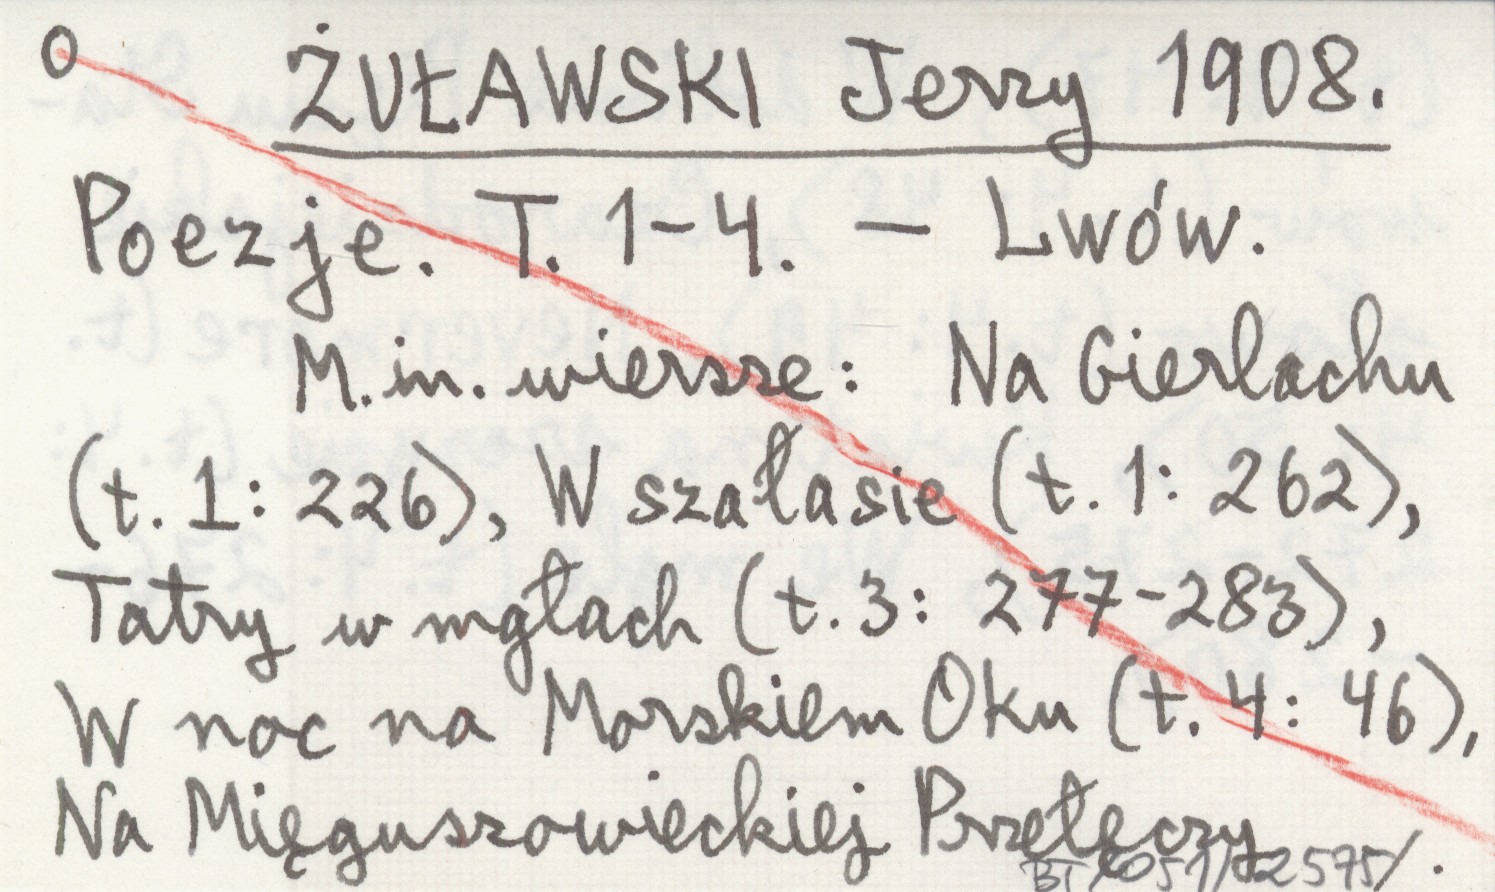 O ŻUŁAWSKI Jerzy 1908.
Poezje. T. 1-4. — Lwów.
M.in. wiersze: Na Gierlachu
(t. 1: 226), W szałasie (t. 1: 262),
Tatry w mgłach (t. 3: 277-283),
W noc na Morskiem Oku (t. 4: 46),
Na Mięguszowieckiej Przełęczy